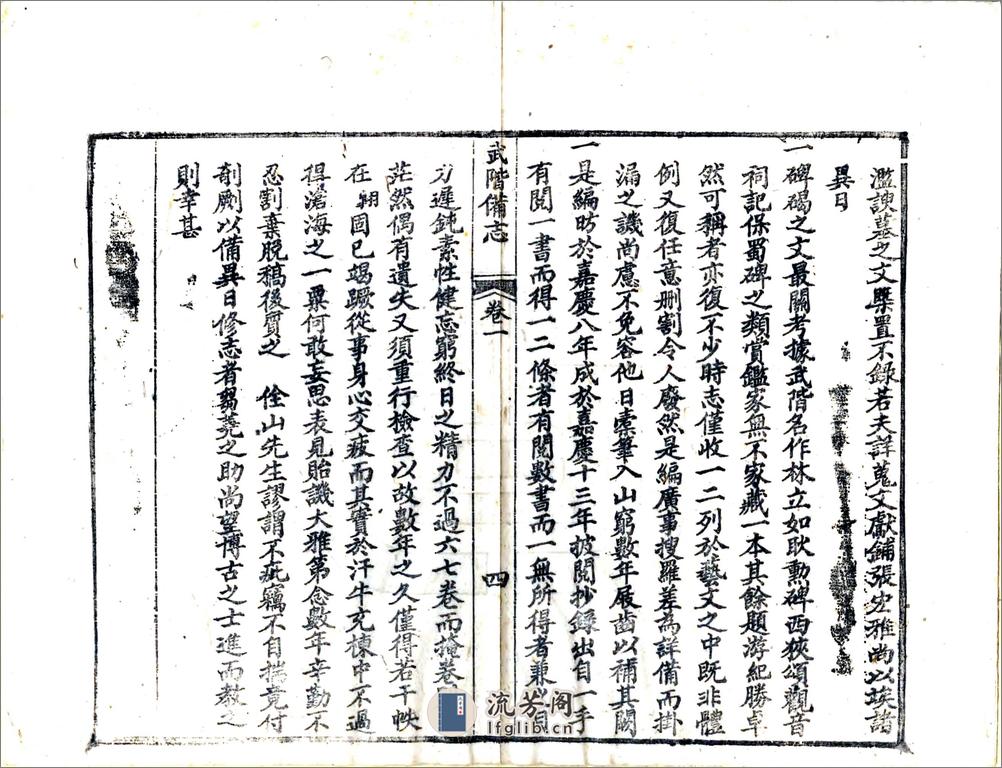 濫諛墓之文槩置不錄若夫詳蒐文獻鋪張宏雅尚以竢諸
異日
一碑碣之文最關考據武階名作林立如耿勳碑西狹頌觀音
祠記保蜀碑之類賞鑑家無不家藏一本其餘題游紀勝卓
然可稱者亦復不少時志僅收一二列於藝文之中既非體
例又復任意刪割令人廢然是編廣事搜羅差為詳備而掛
漏之譏尚慮不免容他日索筆入山窮數年展齒以補其闕
一是編昉於嘉慶八年成於嘉慶十三年披閱抄錄出自一手
有閱一書而得一二條者有閱數書而一無所得者兼以目
武階備志
卷一
四
力遲鈍素性健忘窮終日之精力不過六七卷而掩卷
茫然偶有遺失又須重行檢查以故數年之久僅得若干帙
在翎固已竭蹶從事身心交疲而其實於汗牛充棟中不過
得滄海之一粟何敢妄思表見貽譏大雅第念數年辛勤不
忍割棄脫稿後質之 佺山先生謬謂不疵竊不自揣竟付
剞劂以備異日修志者芻蕘之助尚望博古之士進而教之
則幸甚
流芳阁
lfglib.cn